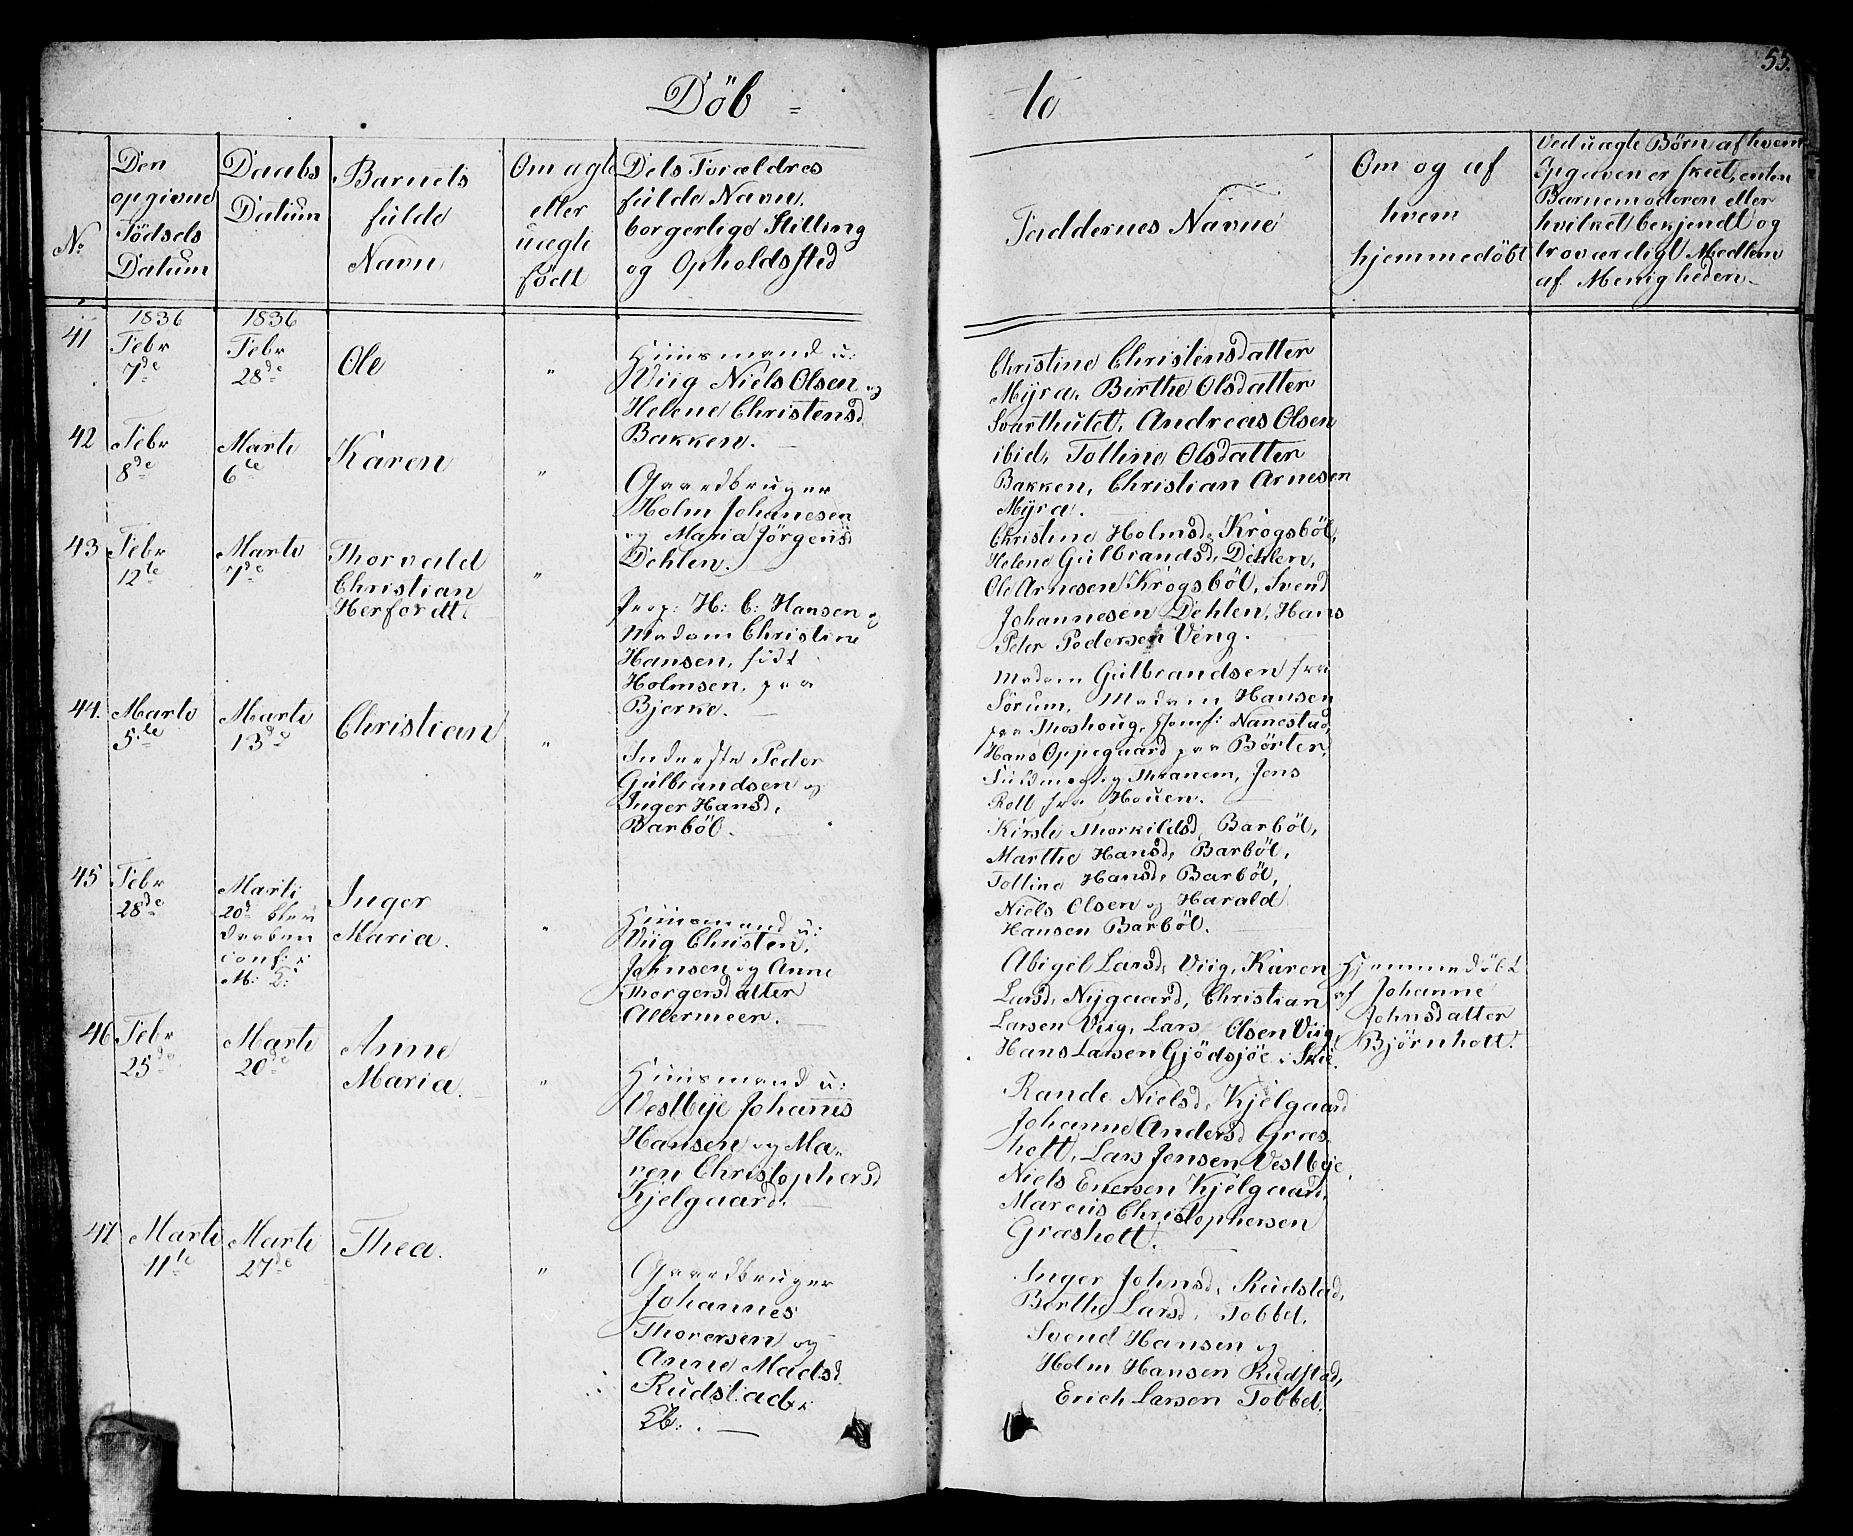 55.
Döb = = te
No
Den
opgivne
Födsels
Datum
Daabs
Datum
Barnets
fulde
Navn
Om ægte
eller
uægte
födt
Dets Forældres
fulde Navn,
borgerlige Stilling
og Opholdssted
Faddernes Navne
Om og af
hvem
hjemmedöbt
Ved uægte Børn af hvem
Opgaven er skeet, enten
Barnemoderen eller
hvilket bekjendt og
troværdigt Medlem
af Menigheden
41
1836
Febr
7de
1836
Febr
28de
Ole
"
Huusmand u:
Wiig Niels Olsen og
Helene Christensd
Bakken.
Christine Christensdatter
Myra, Birthe Olsdatter
Svarthutet, Andreas Olsen
ibid, Tolline Olsdatter
Bakken, Christian Arnesen
Myra.
42
Febr
8de
Marti
6te
Karen
"
Gaardbruger
Holm Johanesen
og Maria Jörgensd
Dehlen.
Christine Holmsd, Krogsböl,
Helene Gulbrandsd, Dehlen,
Ole Arnesen Krogsböl, Svend
Johannesen Dehlen, Hans
Peter Pedersen Veng.
43
Febr
12te
Marti
7de
Thorvald
Christian
Herfordt.
"
Prop: H: C: Hansen og
Madam Christine
Hansen, födt
Holmsen, paa
Bjerke.
Madam Gulbrandsen fra
Sörum, Madam Hansen
paa Moshoug, Jomf: Nanestad,
Hans Oppegaard paa Börter,
Fuldmægtig Thranem, Jens
Roll fra Houen.
44.
Marti
5te
Marti
13de
Christian
"
Inderste Peder
Gulbrandsen og
Inger Hansd,
Barböl.
Kirsti Thorkildsd, Barböl,
Marthe Hansd, Barböl,
Tolline Hansd, Barböl,
Niels Olsen og Harald
Hansen Barböl.
45
Febr
28de
Marti
20de blev
Daaben
conf: i
M: K:
Inger
Maria.
"
Huusmand u:
Wiig Christen
Johnsen og Anne
Thorgersdatter
Allermeen.
Abigel Larsd, Viig, Karen
Larsd, Nygaard, Christian
Larsen Viig, Lars Olsen Viig,
Hans Larsen Gjödsjöe i Skie.
Hjemmedöbt
af Johanne
Johnsdatter
Björnholt.
46
Febr
25de
Marti
20de
Anne
Maria.
"
Huusmand u:
Vestbye Johanes
Hansen og Ma-
ren Christophersd
Kjelgaard.
Rande Nielsd, Kjelgaard
Johanne Andersd Græs-
holt, Lars Jensen Vestbye,
Niels Enersen Kjelgaard,
Marcus Christophersen
Græsholt.
47
Marti
11te
Marti
27de
Thea.
"
Gaardbruger
Johannes
Thorersen og
Anne Madsd.
Rudstad i
Kb:
Inger Johnsd, Rudstad,
Berthe Larsd, Tobbel,
Svend Hansen og
Holm Hansen Rudstad,
Erich Larsen Tobbel.